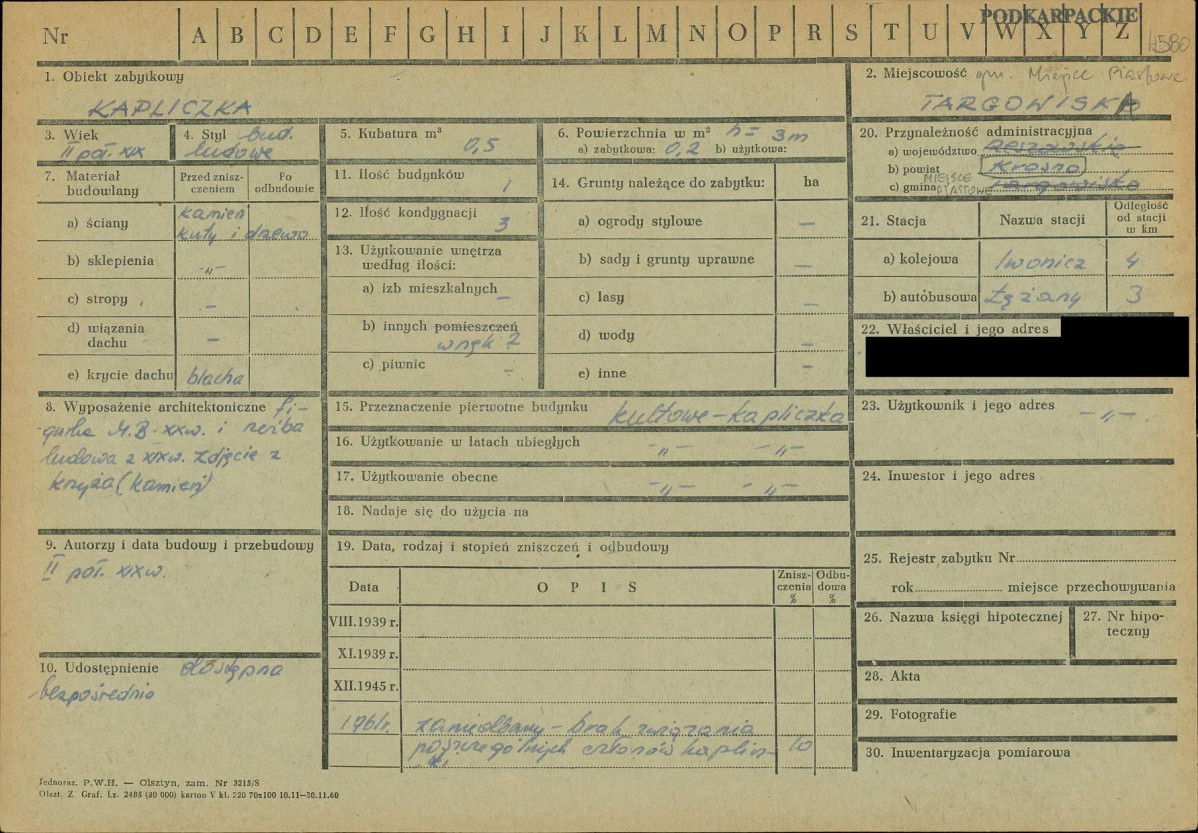 PODKARPACKIE
Nr A B C D E F G H I J K L M N O P R S T U V W X Y Z
4580
1. Obiekt zabytkowy
KAPLICZKA
2. Miejscowość gm. Miejsce Piastowe
TARGOWISKA
3. Wiek
II poł. XIX
4. Styl bud.
ludowe
5. Kubatura m³
0,5
6. Powierzchnia w m² h = 3m
a) zabytkowa: 0,2 b) użytkowa:
20. Przynależność administracyjna
a) województwo rzeszowskie
b) powiat Krosno
c) gmina Targowiska
MIEJSCE PIASTOWE
7. Materiał budowlany
Przed zniszczeniem
Po odbudowie
a) ściany kamień
kuty i drzewo
b) sklepienia -„-
c) stropy -
d) wiązania dachu -
e) krycie dachu blacha
11. Ilość budynków 1
12. Ilość kondygnacji 3
13. Użytkowanie wnętrza
według ilości:
a) izb mieszkalnych -
b) innych pomieszczeń
wnęk 2
c) piwnic -
14. Grunty należące do zabytku: ha
a) ogrody stylowe -
b) sady i grunty uprawne -
c) lasy -
d) wody -
e) inne -
21. Stacja Nazwa stacji Odległość od stacji w km
a) kolejowa Iwonicz 4
b) autobusowa Łężany 3
22. Właściciel i jego adres
8. Wyposażenie architektoniczne fi-
gurka M.B. XXw. i rzeźba
ludowa z XIXw. zdjęcie z
krzyża (kamień)
15. Przeznaczenie pierwotne budynku kultowe - kapliczka
16. Użytkowanie w latach ubiegłych -„- -„-
17. Użytkowanie obecne -„- -„-
18. Nadaje się do użycia na
23. Użytkownik i jego adres -„-
24. Inwestor i jego adres
9. Autorzy i data budowy i przebudowy
II poł. XIXw.
10. Udostępnienie dostępna
bezpośrednio
19. Data, rodzaj i stopień zniszczeń i odbudowy
Data OPIS Zniszczenia % Odbudowa %
VIII.1939 r.
XI.1939 r.
XII.1945 r.
1961r. zaniedbany - brak związania
poszczególnych członów kaplicz- 10
ki
25. Rejestr zabytku Nr
rok miejsce przechowywania
26. Nazwa księgi hipotecznej
27. Nr hipoteczny
28. Akta
29. Fotografie
30. Inwentaryzacja pomiarowa
Jednoraz. P.W.H. — Olsztyn, zam. Nr 3215/S
Olszt. Z. Graf. Lz. 2485 (30 000) karton V kl. 220 70x100 10.11—30.11.60